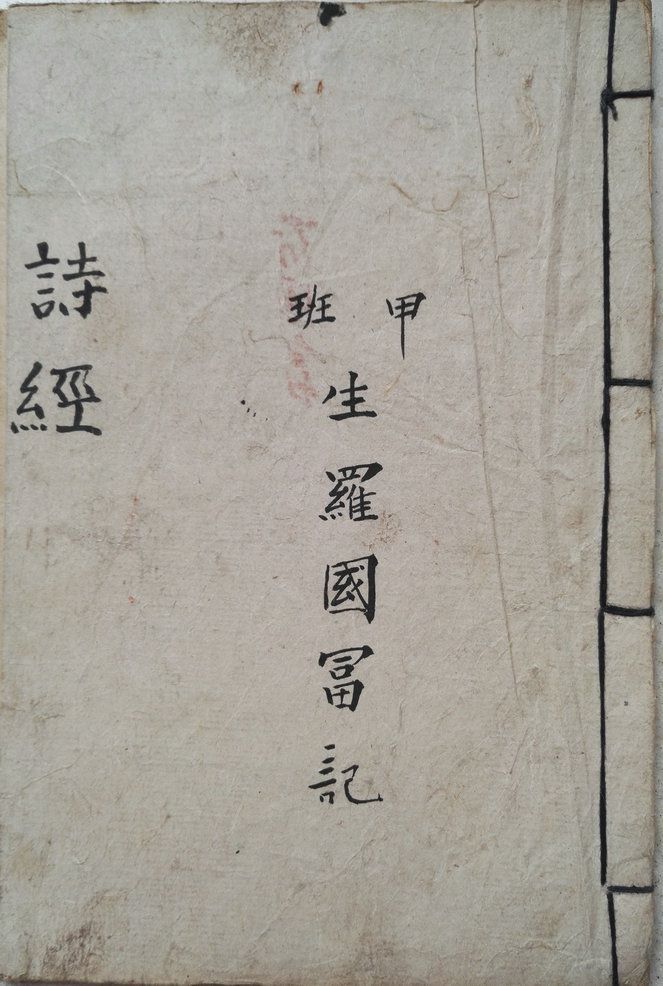 甲班
生羅國冨記
詩經